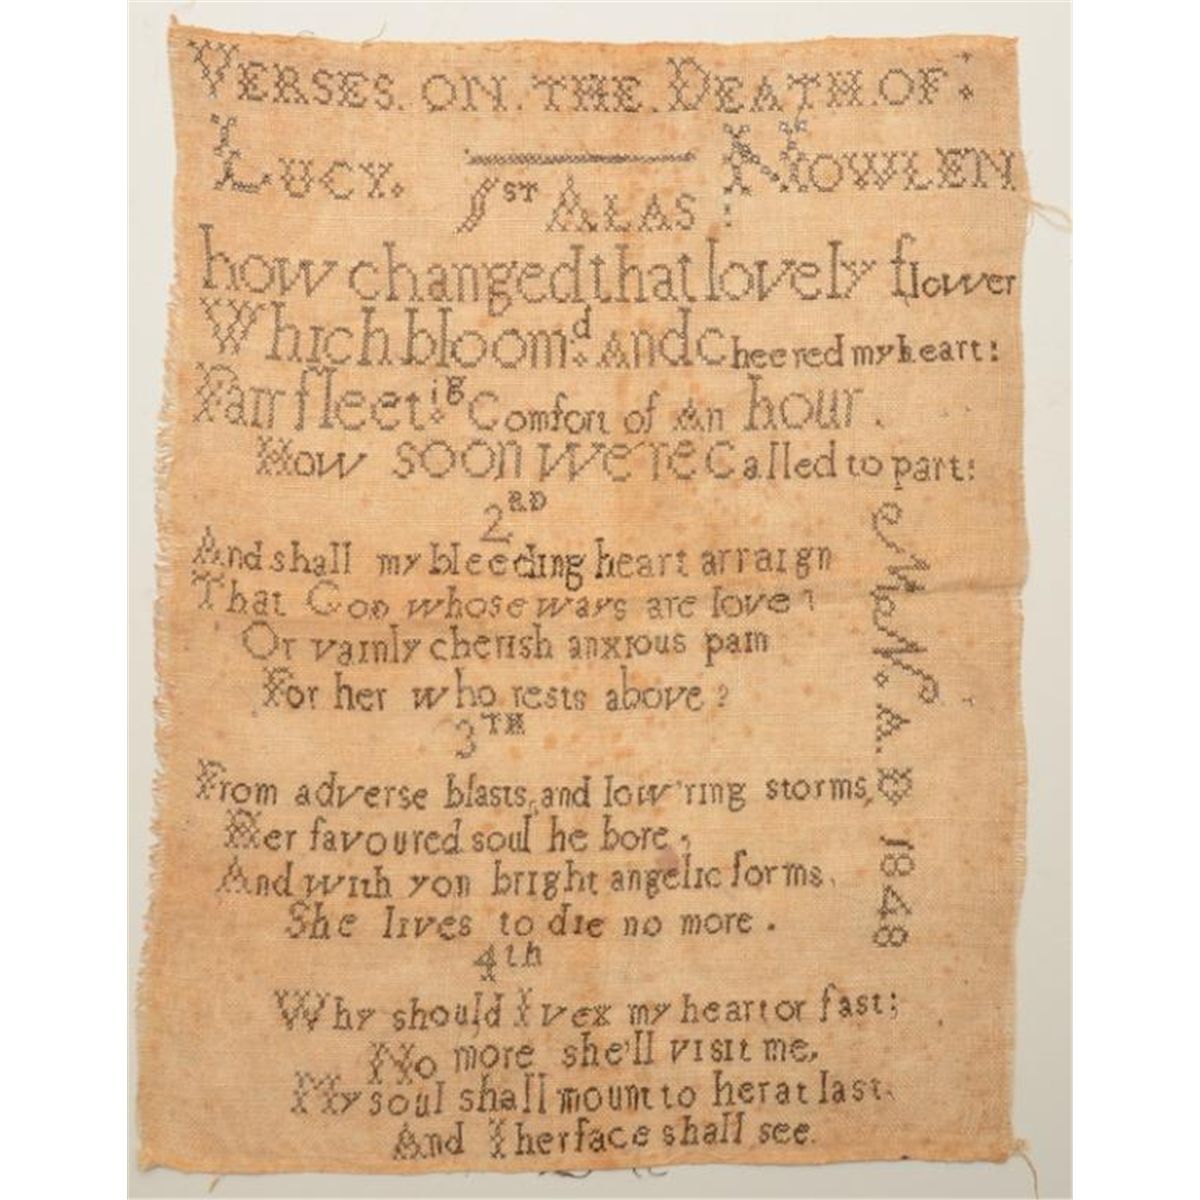 VERSES. ON. THE. DEATH. OF:
LUCY. NOWLEN
1ST ALAS:
how changed that lovely flower
Which bloom.d And Cheered my heart:
Fair fleet.ig Comfort of An hour.
How soon we're Called to part:
2RD
And shall my bleeding heart arraign
That God whose ways are love?
Or vainly cherish anxious pain
For her who rests above?
3TH
From adverse blasts, and low'ring storms,
Her favoured soul he bore,
And with yon bright angelic forms,
She lives to die no more.
4th
Why should I vex my heart or fast;
No more she'll visit me,
My soul shall mount to her at last,
And I her face shall see.
A. D 1848